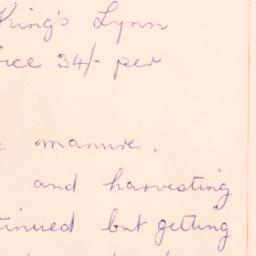 King's Lynn
34/- per
manure.
and harvesting
but getting